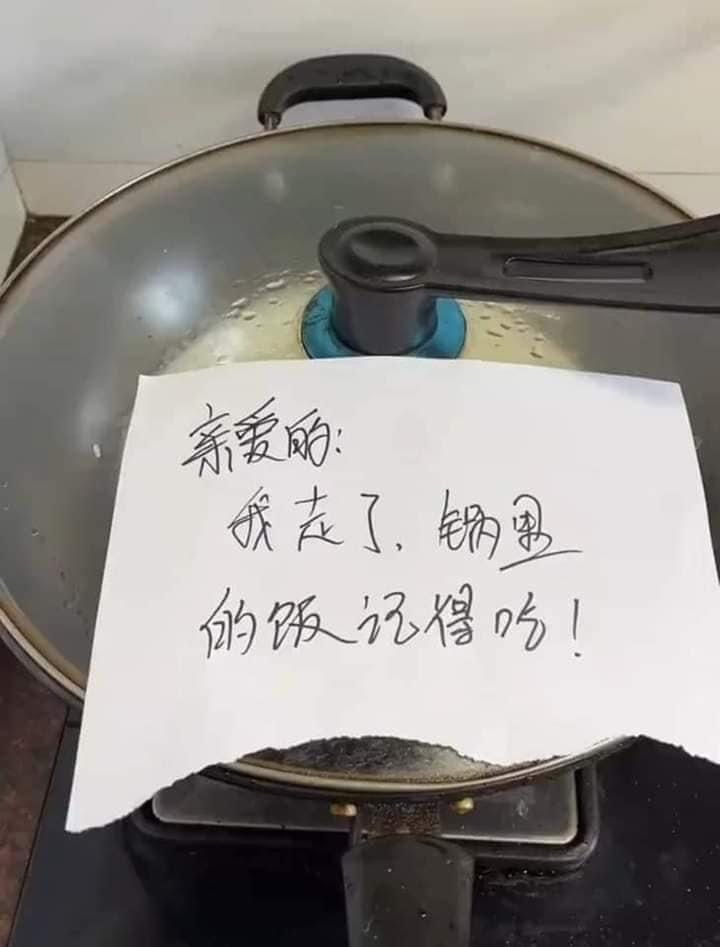 亲爱的:
我走了，锅里
的饭记得吃！